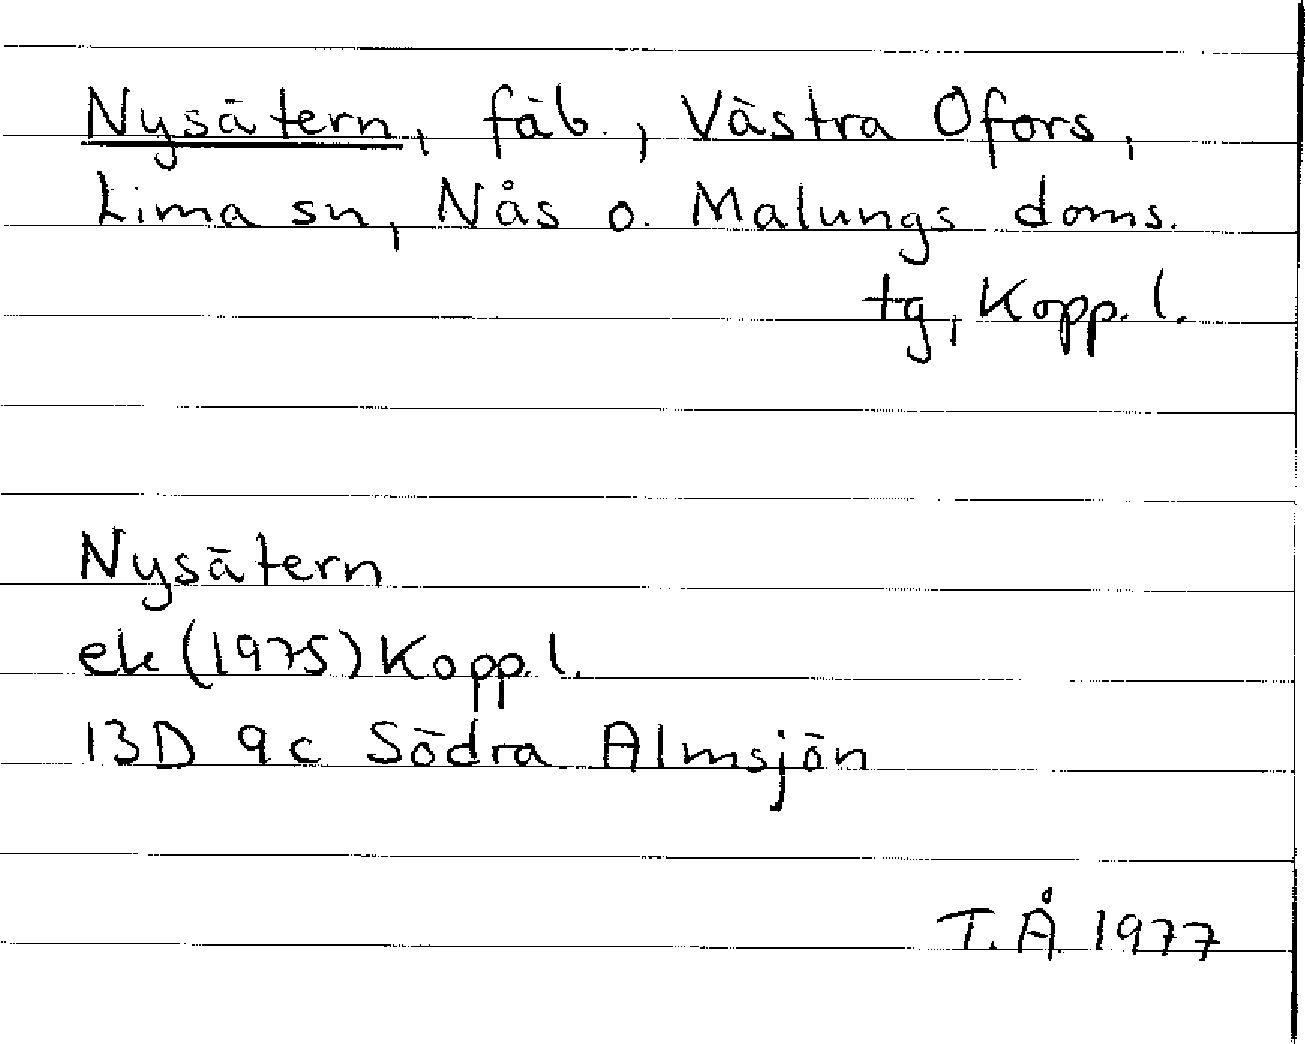 Nysätern, fäb., Västra Ofors,
Lima sn, Nås o. Malungs doms.
tg, Kopp. l.
Nysätern
ek (1975) Kopp. l.
13D 9c Södra Almsjön
T. Å 1977